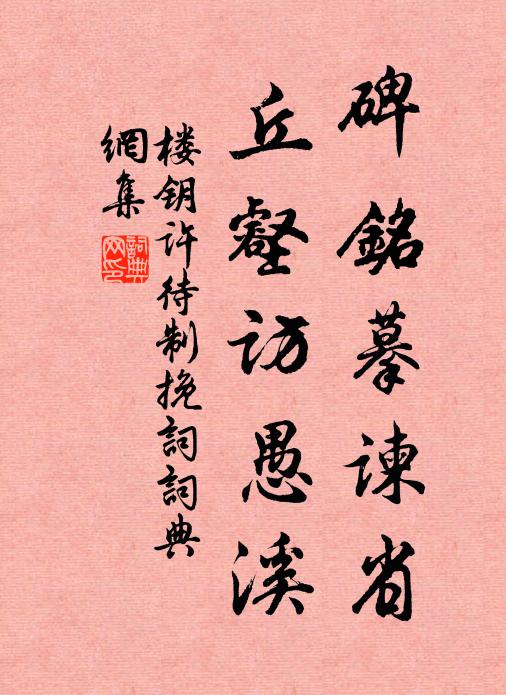 碑銘摹諫省
丘壑访愚溪
楼钥许待制挽詞詞典
網集
詞典網印